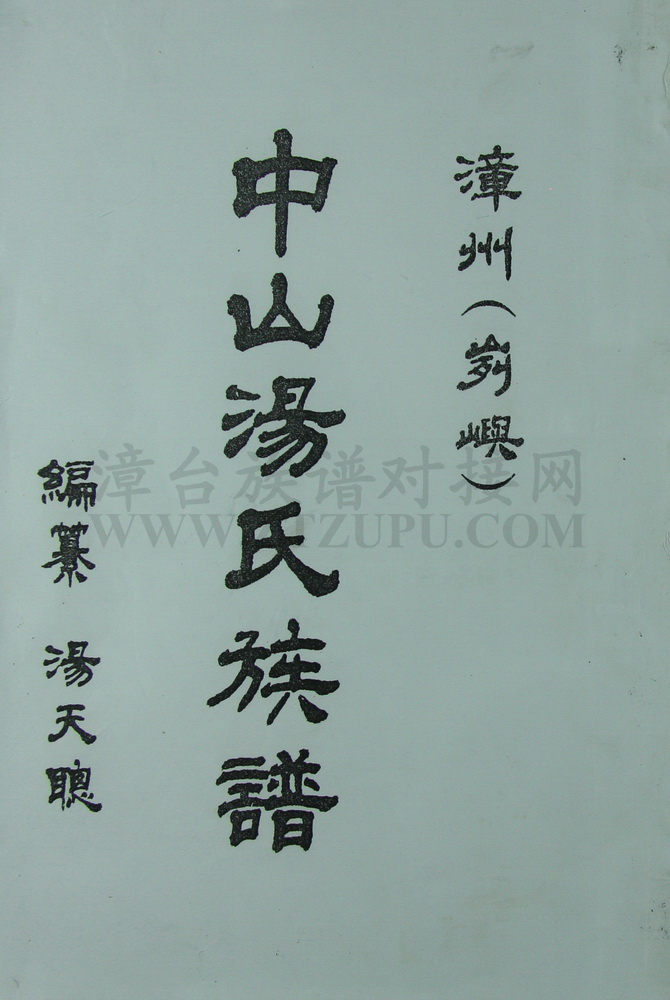 漳州(峛嶼)
中山湯氏族譜
編纂 湯天聰
漳台族谱对接网
WWW.ZTZUPU.COM